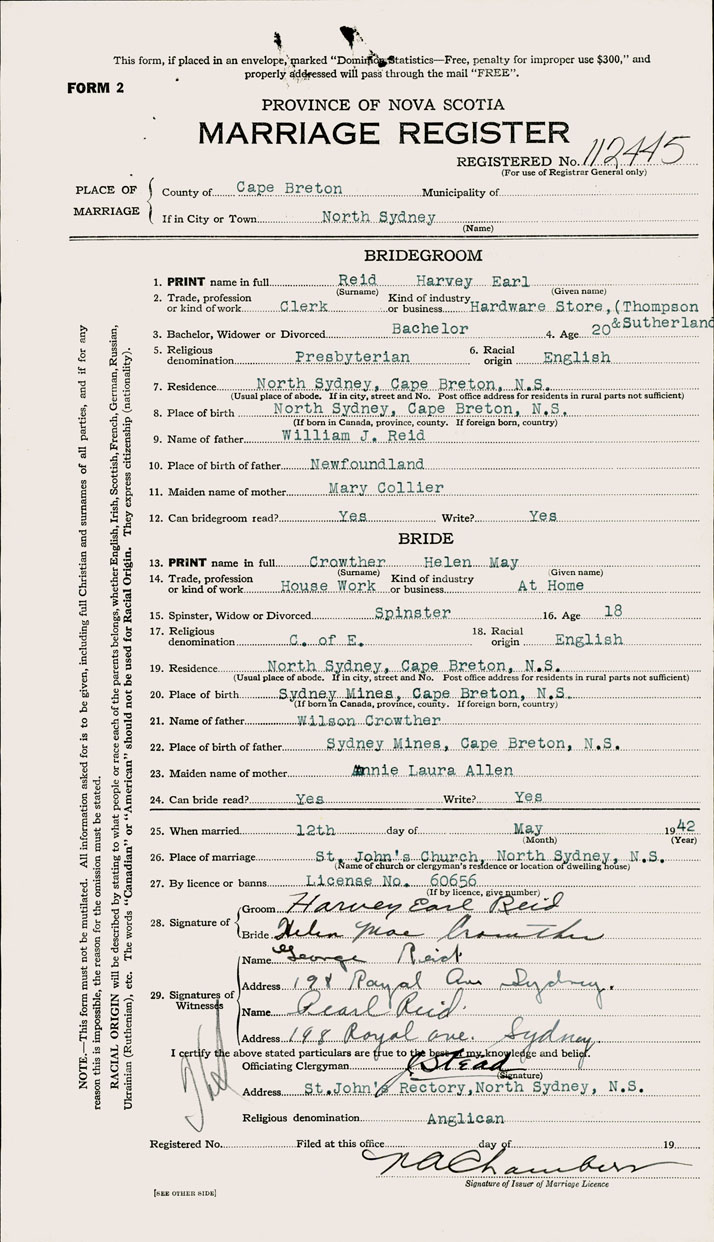 This form, if placed in an envelope, marked "Dominion Statistics—Free, penalty for improper use $300," and
properly addressed will pass through the mail "FREE".
FORM 2
PROVINCE OF NOVA SCOTIA
MARRIAGE REGISTER
REGISTERED No. 112445
(For use of Registrar General only)
PLACE OF MARRIAGE
County of Cape Breton Municipality of
If in City or Town North Sydney
(Name)
BRIDEGROOM
1. PRINT name in full Reid Harvey Earl
(Surname) (Given name)
2. Trade, profession or kind of work Clerk Kind of industry or business Hardware Store, (Thompson
&Sutherland
3. Bachelor, Widower or Divorced Bachelor 4. Age 20
5. Religious denomination Presbyterian 6. Racial origin English
7. Residence North Sydney, Cape Breton, N.S.
(Usual place of abode. If in city, street and No. Post office address for residents in rural parts not sufficient)
8. Place of birth North Sydney, Cape Breton, N.S.
(If born in Canada, province, county. If foreign born, country)
9. Name of father William J. Reid
10. Place of birth of father Newfoundland
11. Maiden name of mother Mary Collier
12. Can bridegroom read? Yes Write? Yes
BRIDE
13. PRINT name in full Crowther Helen May
(Surname) (Given name)
14. Trade, profession or kind of work House Work Kind of industry or business At Home
15. Spinster, Widow or Divorced Spinster 16. Age 18
17. Religious denomination C. of E. 18. Racial origin English
19. Residence North Sydney, Cape Breton, N.S.
(Usual place of abode. If in city, street and No. Post office address for residents in rural parts not sufficient)
20. Place of birth Sydney Mines, Cape Breton, N.S.
(If born in Canada, province, county. If foreign born, country)
21. Name of father Wilson Crowther
22. Place of birth of father Sydney Mines, Cape Breton, N.S.
23. Maiden name of mother Annie Laura Allen
24. Can bride read? Yes Write? Yes
25. When married 12th day of May 1942
(Month) (Year)
26. Place of marriage St. John's Church, North Sydney, N.S.
(Name of church or clergyman's residence or location of dwelling house)
27. By licence or banns License No. 60656
(If by licence, give number)
28. Signature of
Groom Harvey Earl Reid
Bride Helen Mae Crowther
29. Signatures of Witnesses
Name George Reid
Address 198 Royal Ave Sydney.
Name Pearl Reid
Address 198 Royal ave. Sydney
I certify the above stated particulars are true to the best of my knowledge and belief.
Officiating Clergyman Stead
(Signature)
Address St.John's Rectory,North Sydney, N.S.
Religious denomination Anglican
Registered No. Filed at this office day of 19
Chambers
Signature of Issuer of Marriage Licence
[SEE OTHER SIDE]
NOTE.—This form must not be mutilated. All information asked for is to be given, including full Christian and surnames of all parties, and if for any
reason this is impossible, the reason for the omission must be stated.
RACIAL ORIGIN will be described by stating to what people or race each of the parents belongs, whether English, Irish, Scottish, French, German, Russian,
Ukrainian (Ruthenian), etc. The words "Canadian" or "American" should not be used for Racial Origin. They express citizenship (nationality).